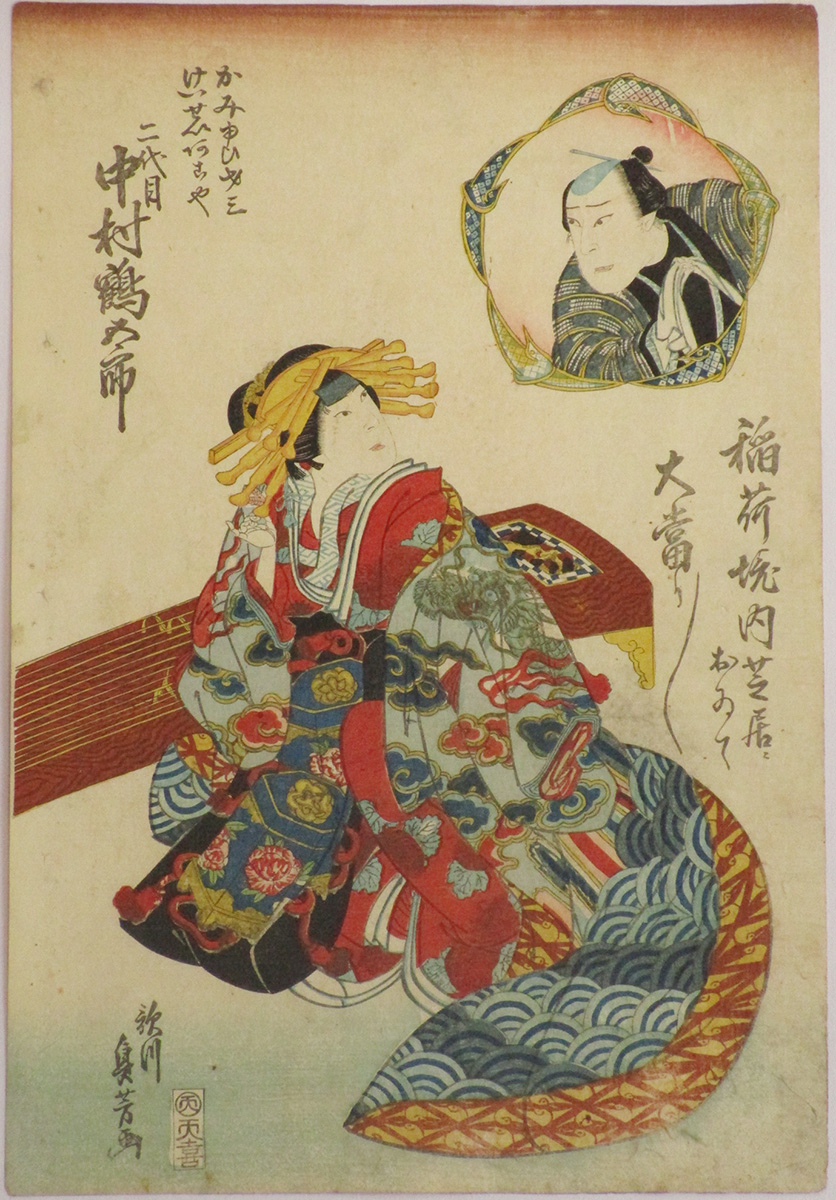 稲荷境内芝居ニ
おゐて
大當り
かみゆひ才三
けいせいあこや
二代目
中村鶴五郎
歌川
貞芳画
天喜